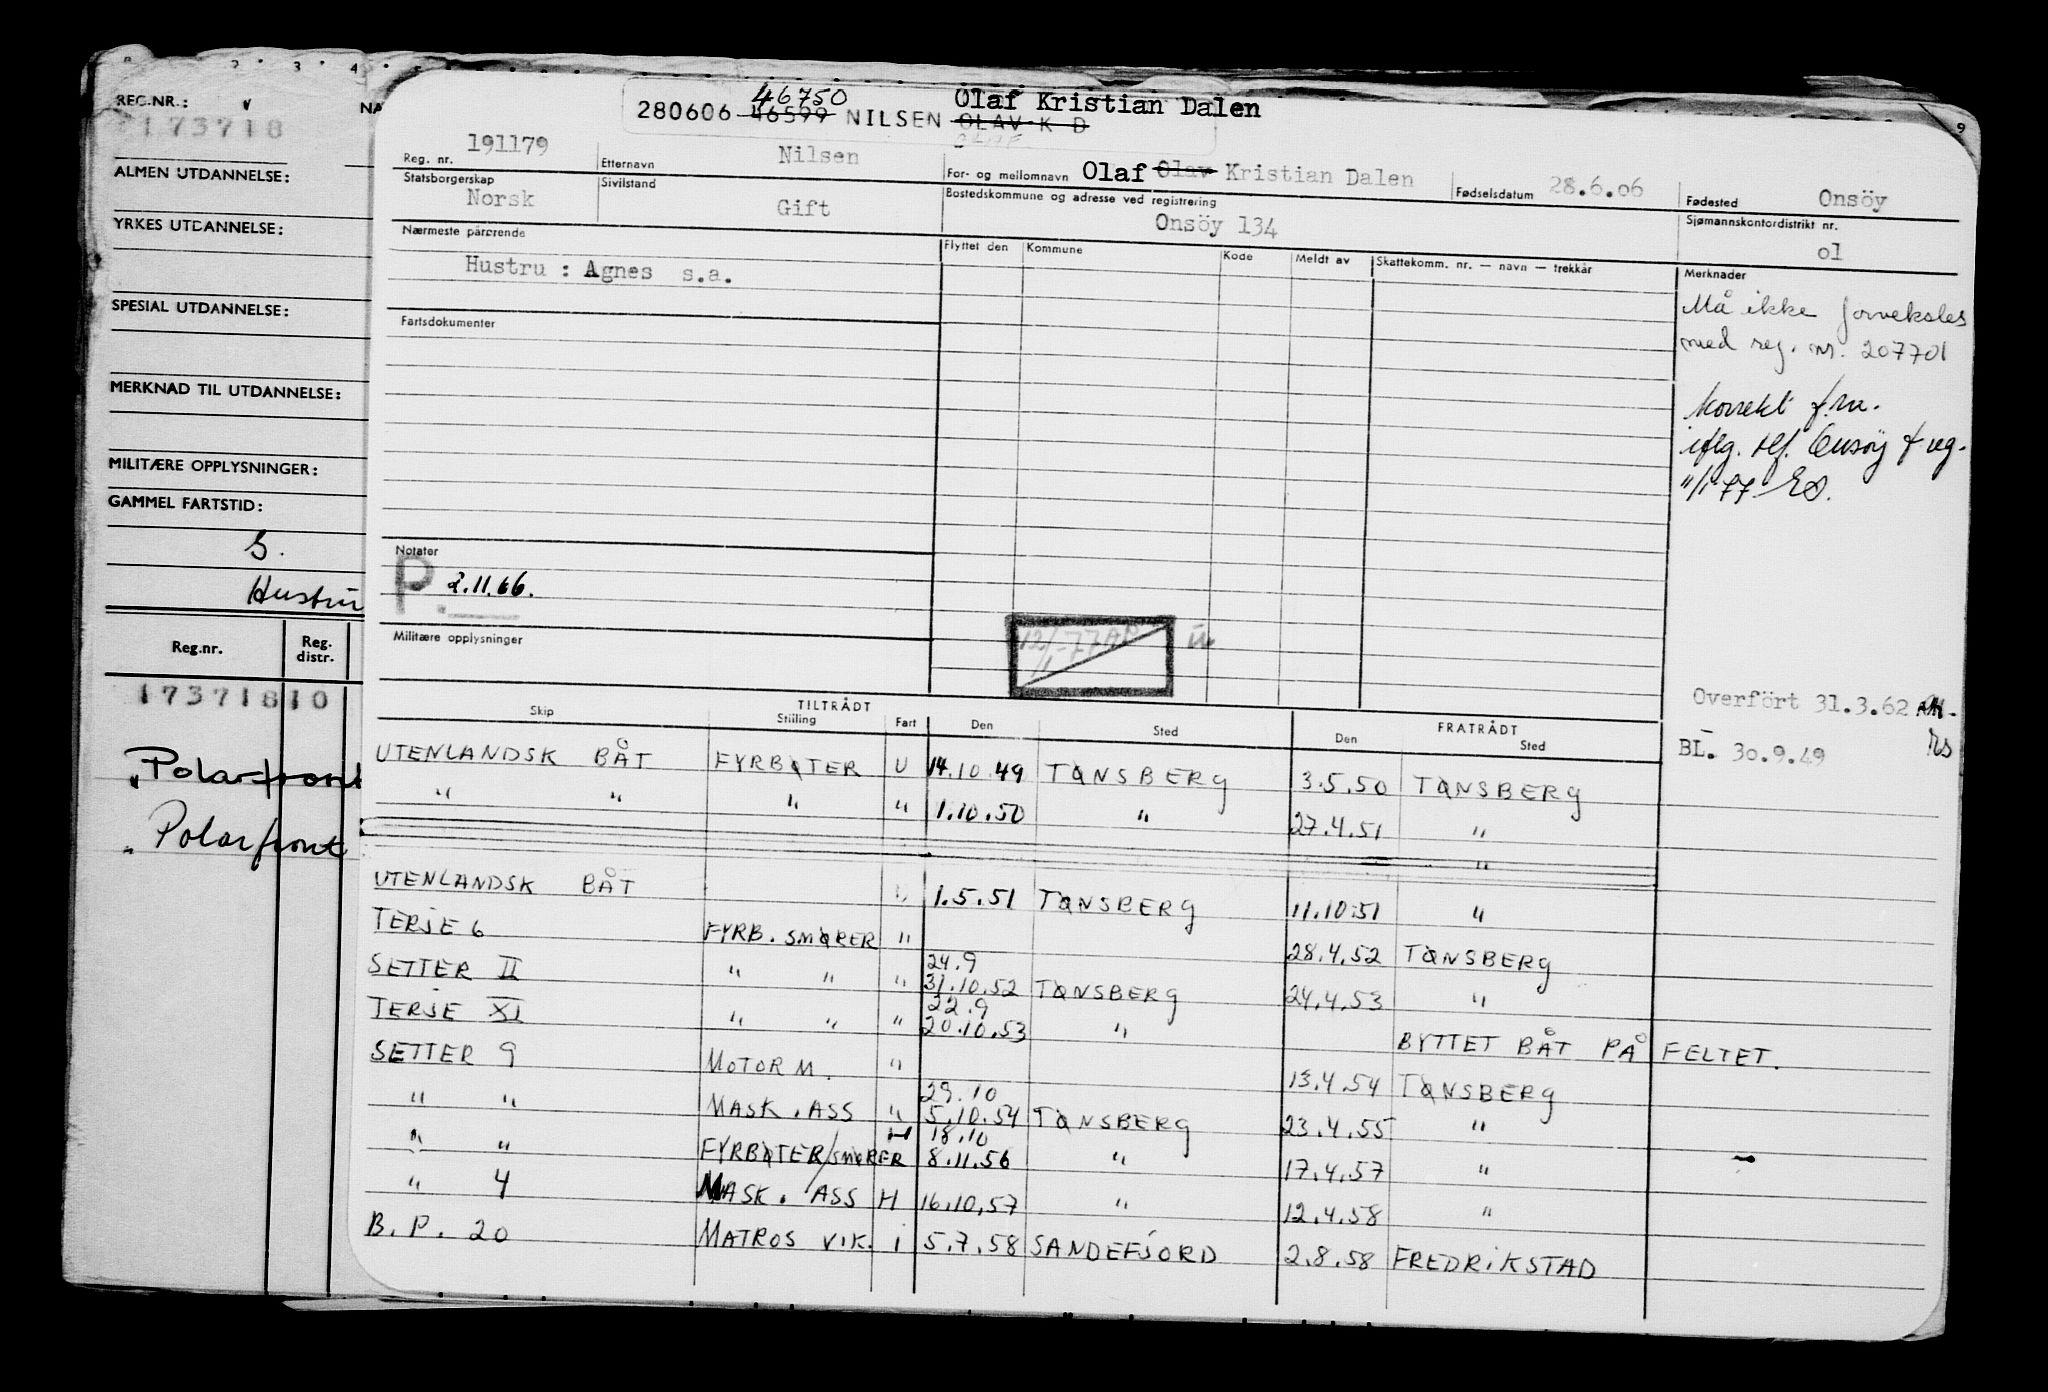 2 3 4 9
REG.NR.: NA
173718
ALMEN UTDANNELSE:
YRKES UTDANNELSE:
SPESIAL UTDANNELSE:
MERKNAD TIL UTDANNELSE:
MILITÆRE OPPLYSNINGER:
GAMMEL FARTSTID:
S.
Hustru
Reg.nr. Reg. distr.
173718 10
" Polarfront
" Polarfront
46750 Olaf Kristian Dalen
280606 46599 NILSEN OLAV K D
191179 Nilsen Olaf Olav Kristian Dalen 28.6.06 Onsöy
Reg. nr. Etternavn For- og mellomnavn Fødselsdatum Fødested
Statsborgerskap Sivilstand Bostedskommune og adresse ved registrering Sjømannskontordistrikt nr.
Norsk Gift Onsöy 134 01
Nærmeste pårørende Flyttet den Kommune Kode Meldt av Skattekomm. nr. — navn — trekkår Merknader
Hustru : Agnes s.a.
Må ikke forveksles
med reg. nr. 207701
Fartsdokumenter
Korrekt f.nr.
iflg. tlf. Onsøy f.reg.
11/1 77 ES.
Notater
P. 2.11.66.
12/1-77
Militære opplysninger
Overfört 31.3.62
BL. 30.9.49
TILTRÅDT FRATRÅDT
Skip Stilling Fart Den Sted Den Sted
UTENLANDSK BÅT FYRBØTER U 14.10.49 TØNSBERG 3.5.50 TØNSBERG
" " " " 1.10.50 " 27.4.51 "
"
UTENLANDSK BÅT " 1.5.51 TØNSBERG 11.10.51 "
TERJE 6 FYRB. SMØRER " 28.4.52 TØNSBERG
24.9
SETTER II " " " 31.10.52 TØNSBERG 24.4.53 "
22.9
TERJE XI " " " 20.10.53 " BYTTET BÅT PÅ FELTET.
SETTER 9 MOTORM. " 13.4.54 TØNSBERG
29.10
" " MASK. ASS " 5.10.54 TØNSBERG 23.4.55 "
18.10
" " FYRBØTER/SMØRER H 8.11.56 " 17.4.57 "
" 4 MASK. ASS H 16.10.57 " 12.4.58 "
B. P. 20 MATROS VIK. i 5.7.58 SANDEFJORD 2.8.58 FREDRIKSTAD